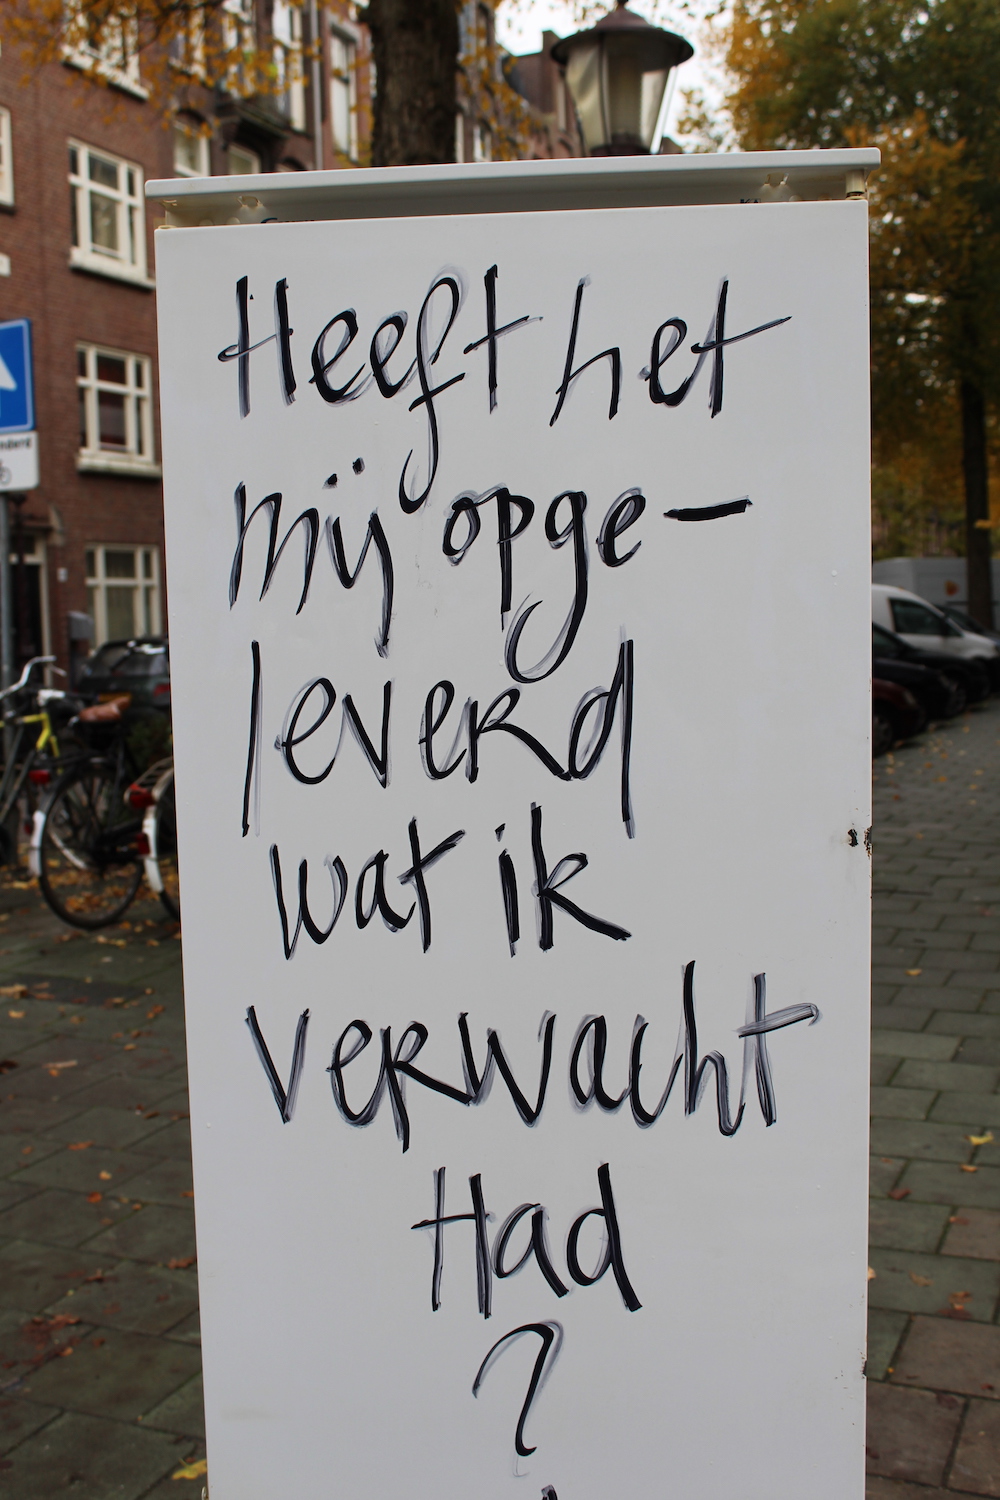 Heeft het
mij opge-
leverd
wat ik
verwacht
Had
?